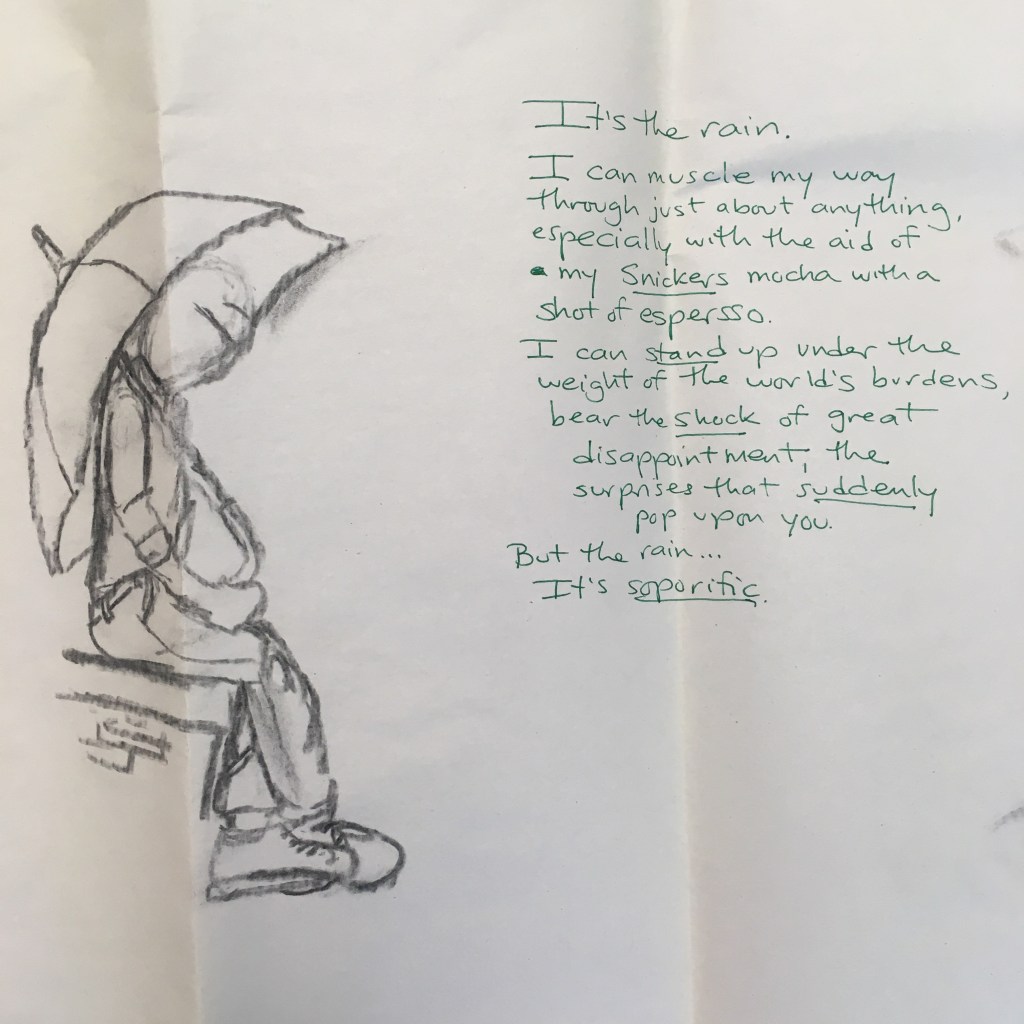 It's the rain.
I can muscle my way
through just about anything,
especially with the aid of
my Snickers mocha with a
shot of espersso.
I can stand up under the
weight of the world's burdens,
bear the shock of great
disappointment, the
surprises that suddenly
pop upon you.
But the rain...
It's soporific.